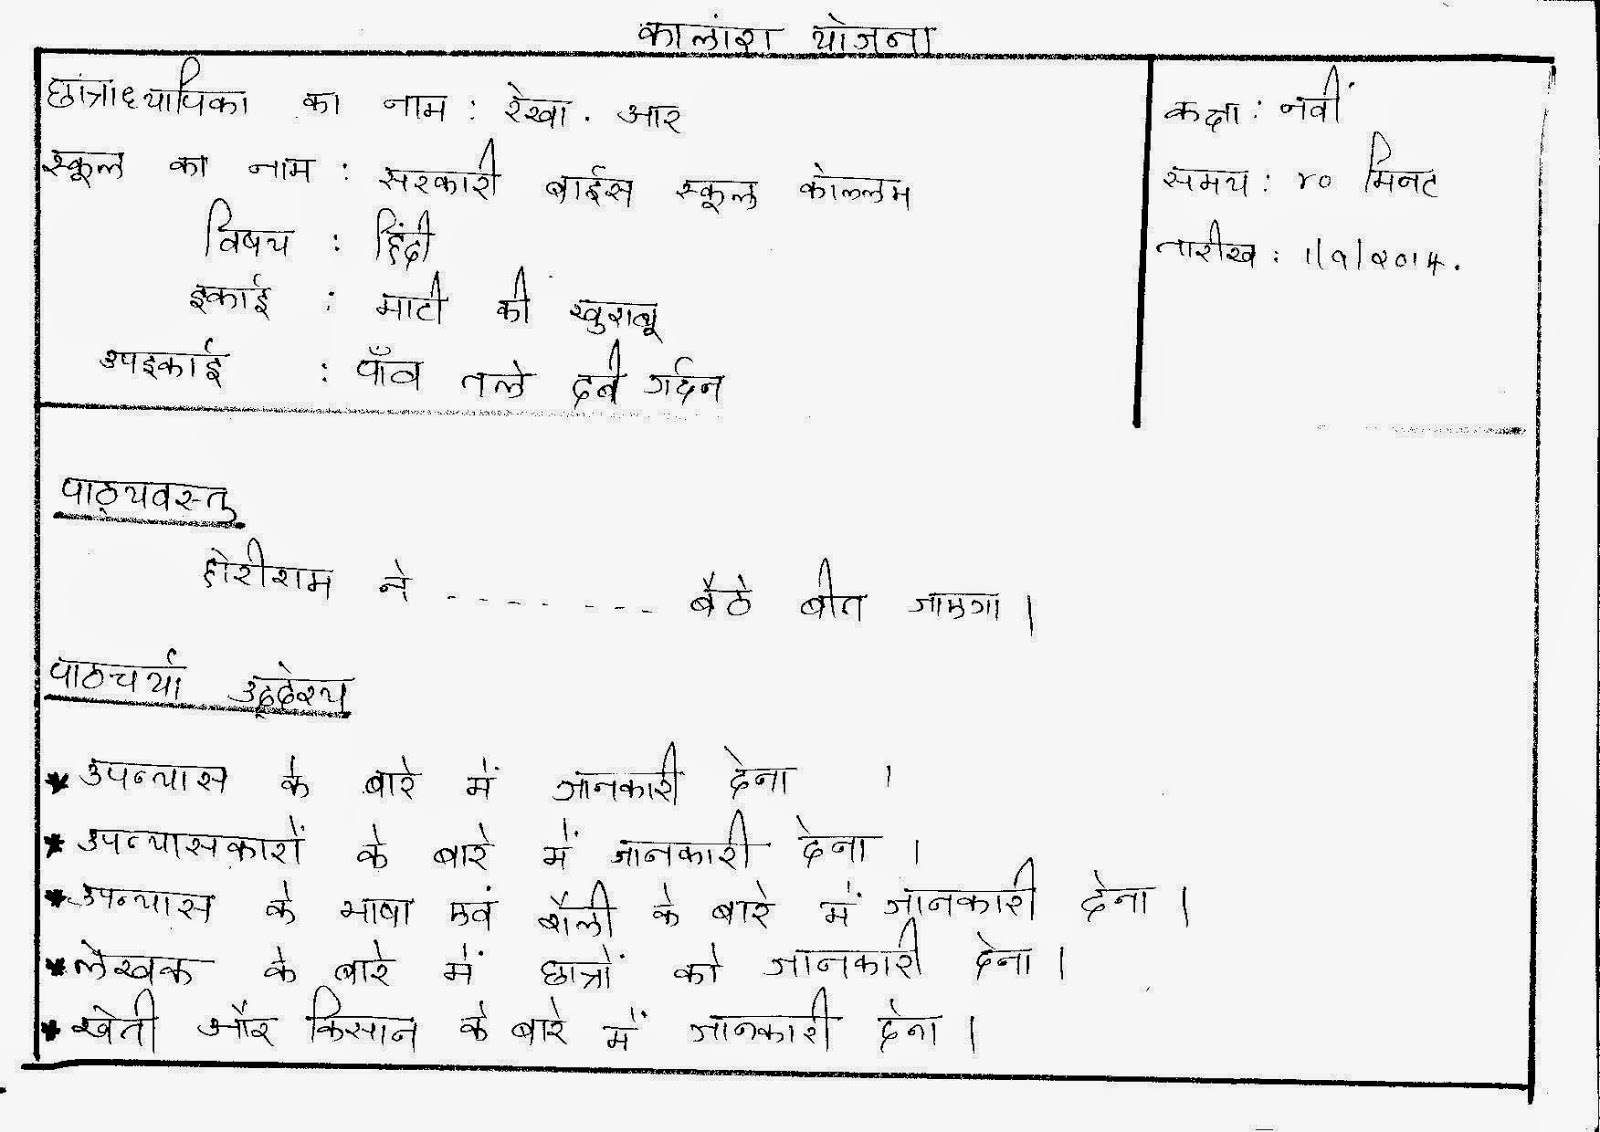 कालांश योजना
छात्राध्यापिका का नाम : रेखा . आर
स्कूल का नाम : सरकारी बाईस स्कूल कोल्लम
विषय : हिंदी
इकाई : माटी की खुशबू
उपइकाई : पाँव तले दबी गर्दन
कक्षा : नवीं
समय : ४० मिनट
तारीख : 1/9/2014.
पाठ्यवस्तु
होरीराम ने - - - - - - - बैठे बीत जाएगा ।
पाठचर्या उद्देश्य
* उपन्यास के बारे में जानकारी देना ।
* उपन्यासकारों के बारे में जानकारी देना ।
* उपन्यास के भाषा एवं शैली के बारे में जानकारी देना ।
* लेखक के बारे में छात्रों को जानकारी देना ।
* खेती और किसान के बारे में जानकारी देना ।